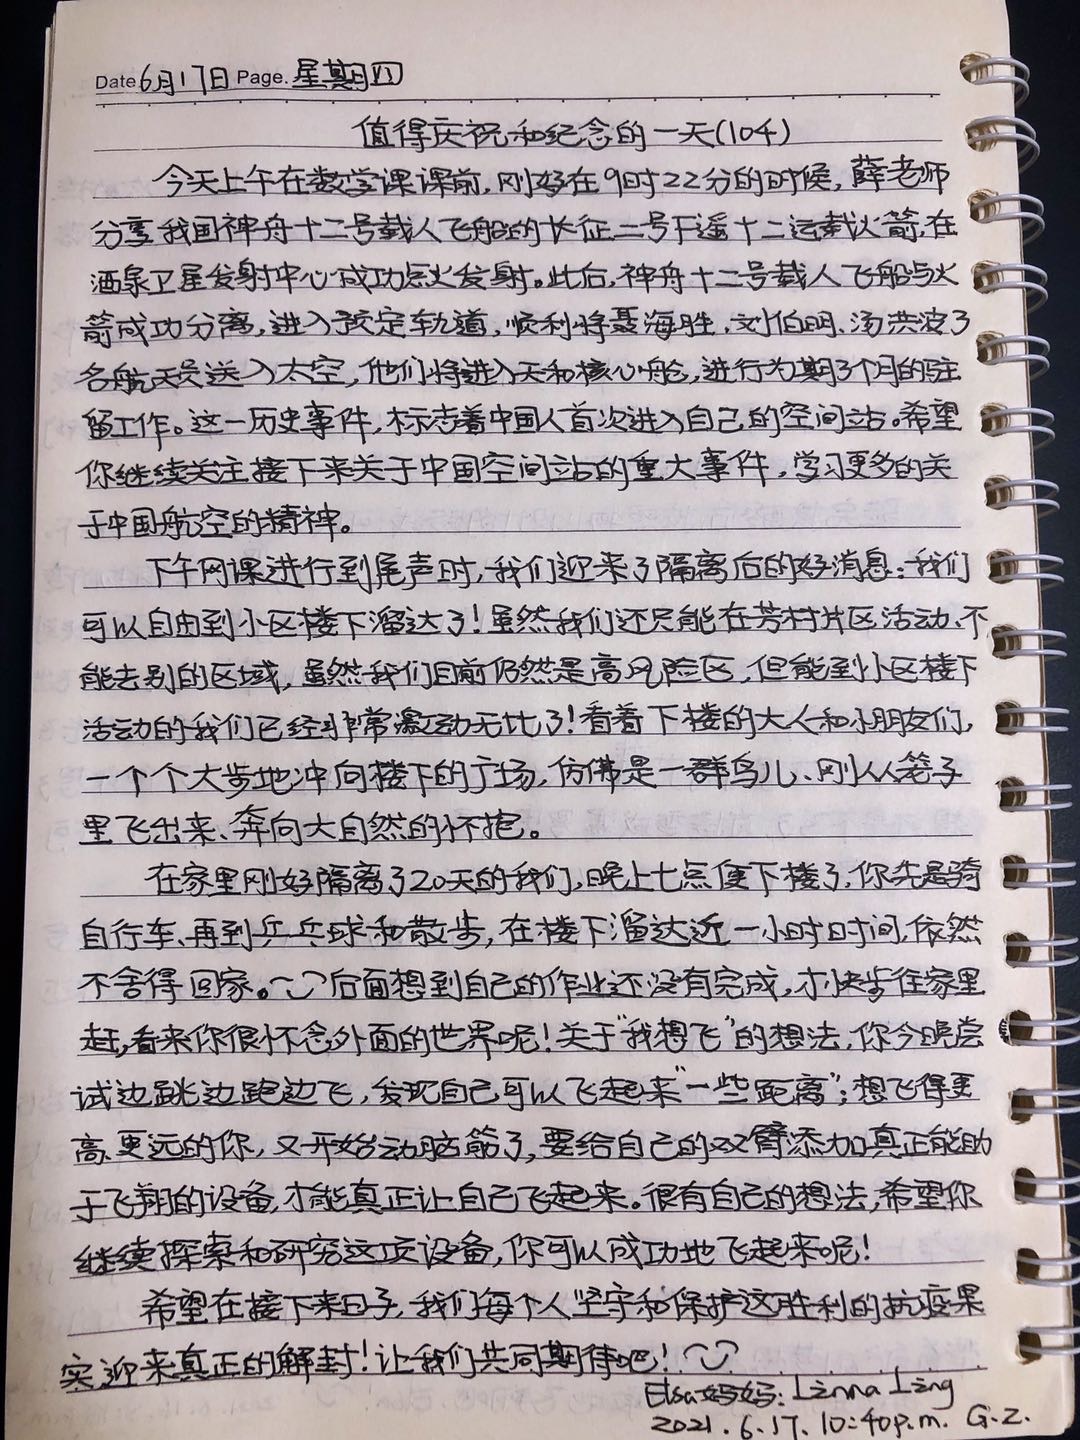 Date 6月17日 Page. 星期四
值得庆祝和纪念的一天(104)
今天上午在数学课课前,刚好在9时22分的时候,薛老师
分享我国神舟十二号载人飞船的长征二号F遥十二运载火箭,在
酒泉卫星发射中心成功点火发射。此后,神舟十二号载人飞船与火
箭成功分离,进入预定轨道,顺利将聂海胜、刘伯明、汤洪波3
名航天员送入太空,他们将进入天和核心舱,进行为期3个月的驻
留工作。这一历史事件,标志着中国人首次进入自己的空间站。希望
你继续关注接下来关于中国空间站的重大事件,学习更多的关
于中国航空的精神。
下午网课进行到尾声时,我们迎来了隔离后的好消息:我们
可以自由到小区楼下溜达了!虽然我们还只能在芳村片区活动、不
能去别的区域,虽然我们目前仍然是高风险区,但能到小区楼下
活动的我们已经非常激动无比了!看着下楼的大人和小朋友们,
一个个大步地冲向楼下的广场,仿佛是一群鸟儿、刚从笼子
里飞出来、奔向大自然的怀抱。
在家里刚好隔离了20天的我们,晚上七点便下楼了,你先是骑
自行车、再到乒乓球和散步,在楼下溜达近一小时时间,依然
不舍得回家。后面想到自己的作业还没有完成,才快步往家里
赶,看来你很怀念外面的世界呢!关于"我想飞"的想法,你今晚尝
试边跳边跑边飞,发现自己可以飞起来"一些距离";想飞得更
高、更远的你,又开始动脑筋了,要给自己的双臂添加真正能助
于飞翔的设备,才能真正让自己飞起来。很有自己的想法,希望你
继续探索和研究这项设备,你可以成功地飞起来呢!
希望在接下来日子,我们每个人坚守和保护这胜利的抗疫果
实迎来真正的解封!让我们共同期待吧!
Elsa妈妈:Linna Ling
2021.6.17.10:40p.m. G.Z.